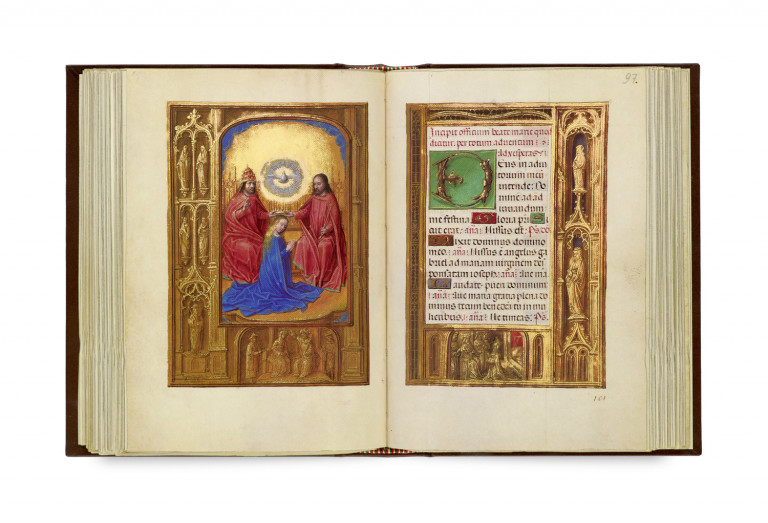 97.
Incipit officium beate marie quod
dicitur per totum adventum
ad vesperas
Deus in adiu
torium meū
intende: Do
mine ad ad
iuvandum
me festina Gloria pri
Sicut erat. aña Missus est. Ps. do
Dixit dominus domino
meo. aña Missus ē angelus ga
briel ad mariam virginem de
sponsatam ioseph. aña Ave ma
Laudate pueri dominum
aña Ave maria gratia plena do
minus tecum bene dicta tu in mu
lieribus. aña Ne timeas. Ps.
101